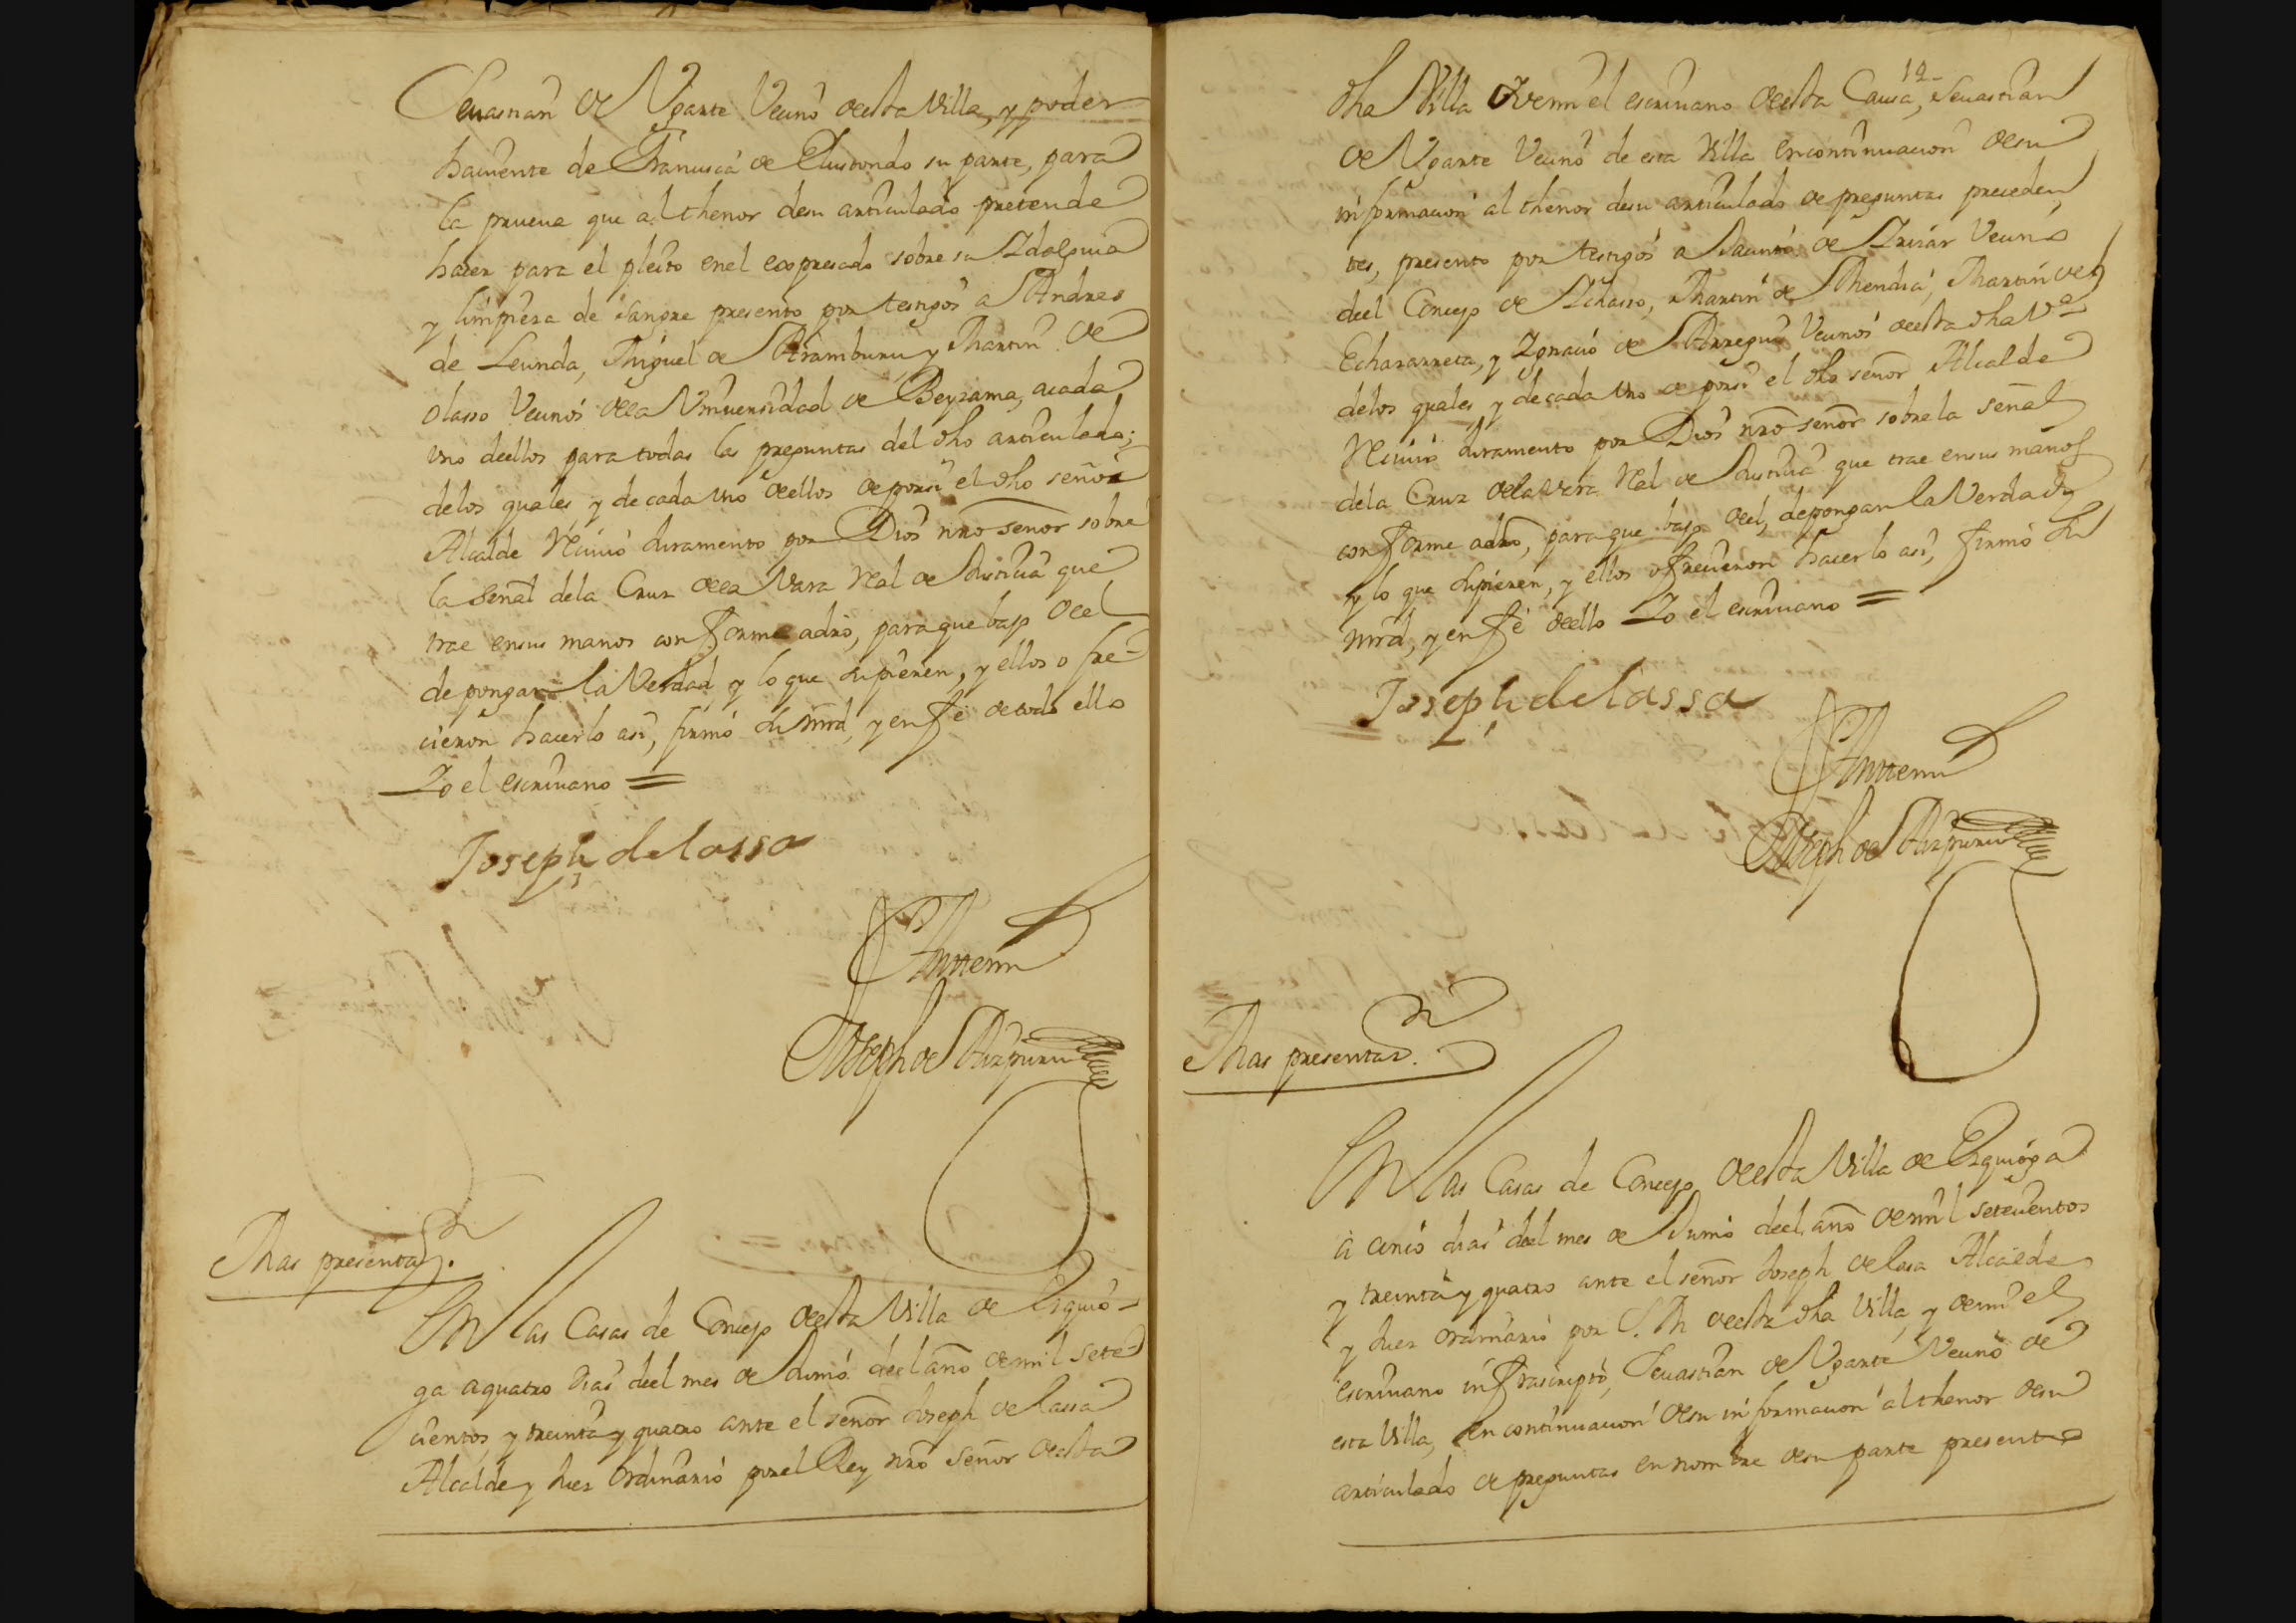 Sevastian de Ugarte Vecino de esta Villa, y poder
haviente de Francisca de Elustondo su parte, para
la prueva que al thenor de su articulado pretende
hacer para el pleito en el expresado sobre su Idalguia
y limpieza de sangre presento por testigos a Andres
de Leunda, Miguel de Aramburu, y Martin de
olasso Vecinos de la Universidad de Beyzama, acada
uno dellos para todas las preguntas del dho articulado;
delos quales y de cada uno de ellos de por si el dho señor
Alcalde Recivio Juramento por Dios nro señor sobre
la señal dela Cruz de la Vara Real de Justicia que
trae ensus manos conforme adro, para que bajo de el
depongan la Verdad, y lo que supieren, y ellos ofre-
cieron hacerlo asi, firmó su mrd, y en fe de todo ello
Yo el escrivano =
Joseph de lassa
Ante mi
Joseph de Aizpuru
Mas presentaz.n
En las Casas de Concejo de esta Villa de Ezquio-
ga aquatro dias deel mes de Junio deel año de mil sete-
cientos, y treinta y quatro ante el señor Joseph de Lassa
Alcalde y Juez ordinario por el Rey nro señor de esta
12
dha Villa de mi el escrivano de esta Causa, Sevastian
de Ugarte Vecino de esta Villa en continuacion de su
informacion al thenor desu articulado de preguntas preceden
tes, presento por testigos a Jacinto de Irizar Vecino
deel Concejo de Ichasso, Martin de Mendia, Martin de
Echazarreta, y Ignacio de Arregui Vecinos de esta dha Va
delos quales y de cada uno de por si el dho señor Alcalde
Recivio Juramento por Dios nro señor sobre la señal
dela Cruz de la vara Real de Justicia que trae ensus manos
conforme adro, para que bajo de el, depongan la Verdad
y lo que supieren, y ellos ofrecieron hacerlo asi, firmó su
mrd, y en fe de ello Yo el escrivano =
Joseph de lassa
Ante mi
Joseph de Aizpuru
Mas presentaz.n
En las Casas de Concejo de esta Villa de Ezquioga
a cinco dias deel mes de Junio deel año de mil setecientos
y treinta y quatro ante el señor Joseph de lasa Alcalde
y Juez ordinario por S. M. de esta dha Villa, y de mi el
escrivano infrascripto, Sevastian de Ugarte Vecino de
esta Villa, en continuacion de su informacion al thenor de su
articulado de preguntas en nombre de su parte presento